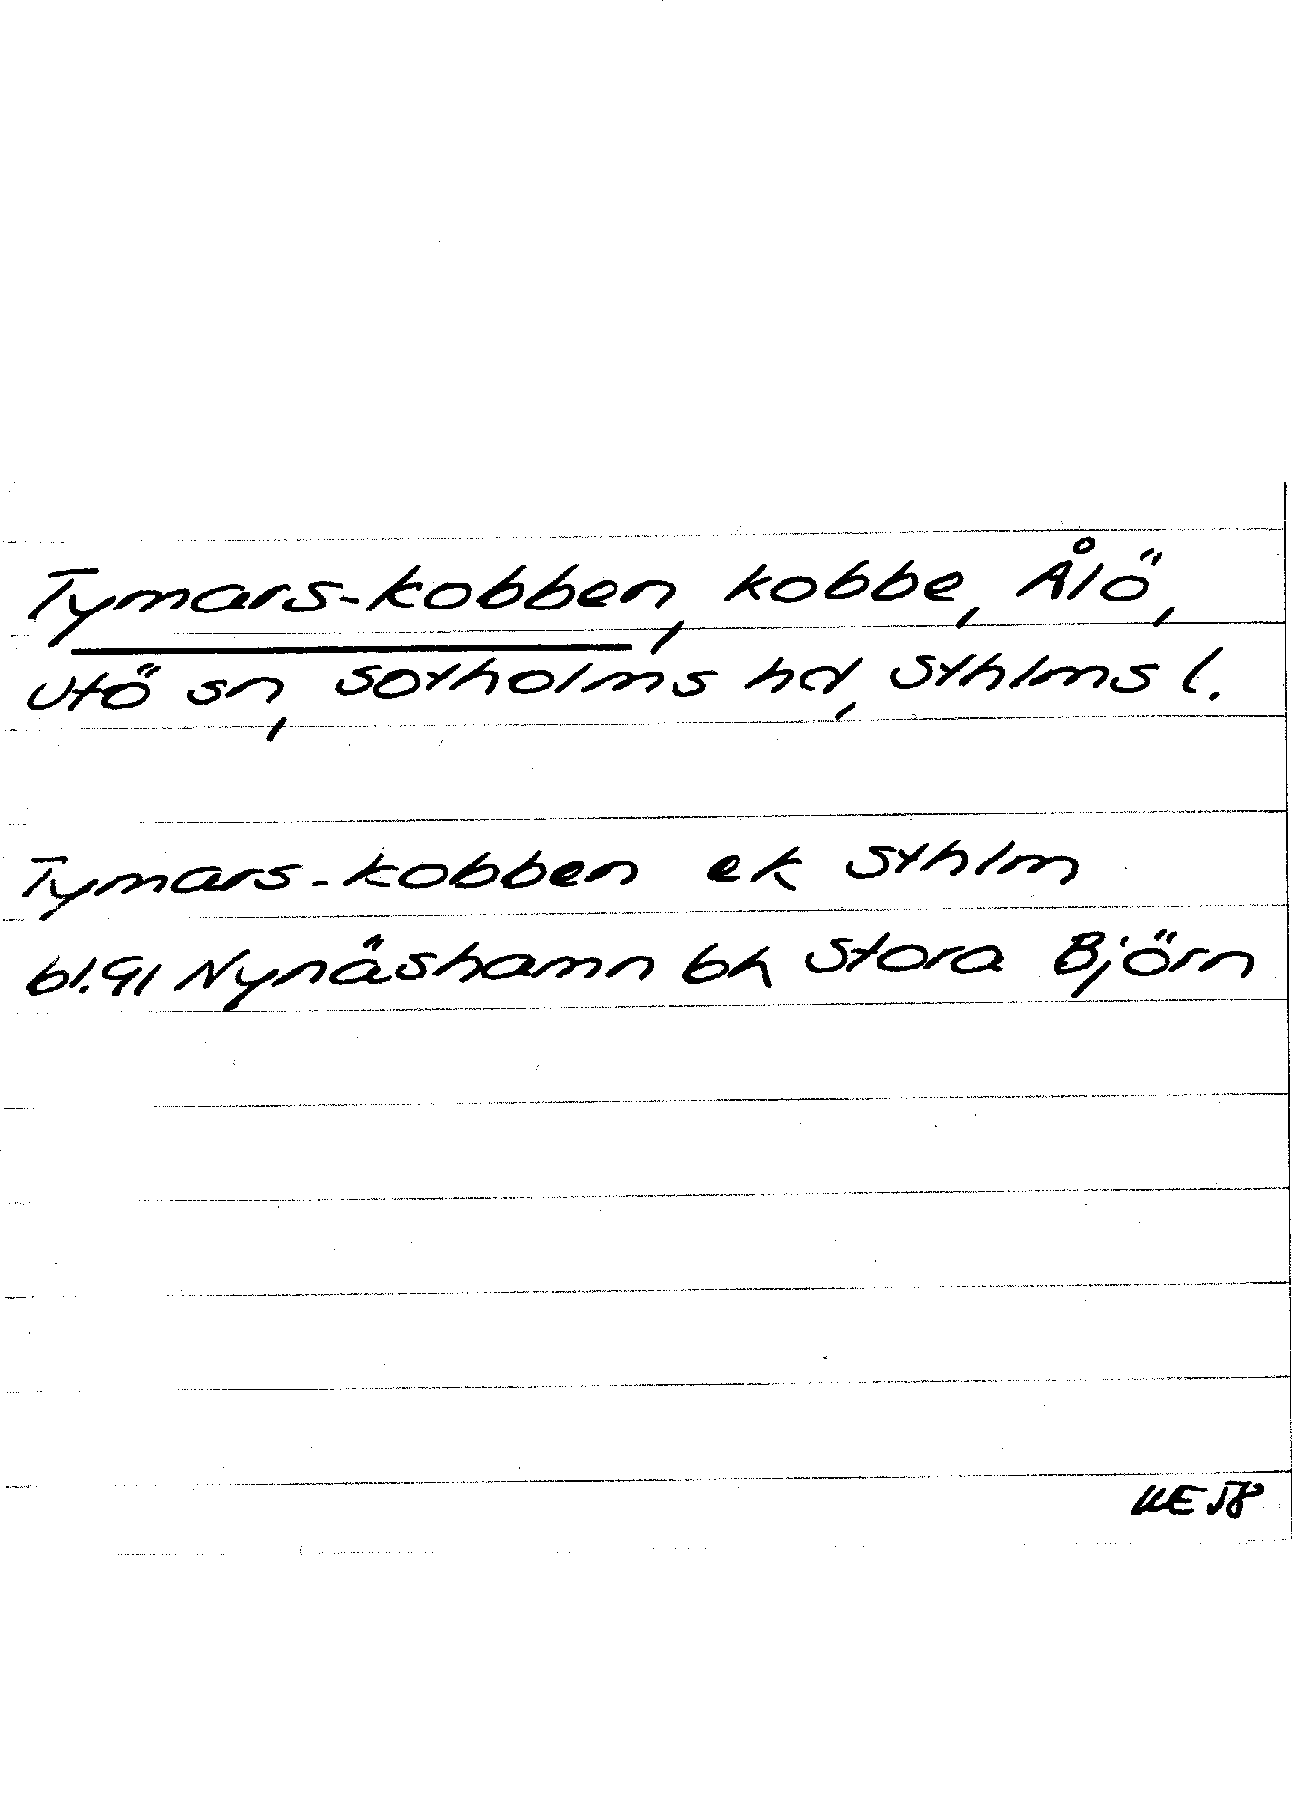 Tymars-kobben, kobbe, Ålö,
Utö sn, Sotholms hd, Sthlms l.
Tymars-kobben ek Sthlm
bl.91 Nynäshamn bk Stora Björn
UE 58